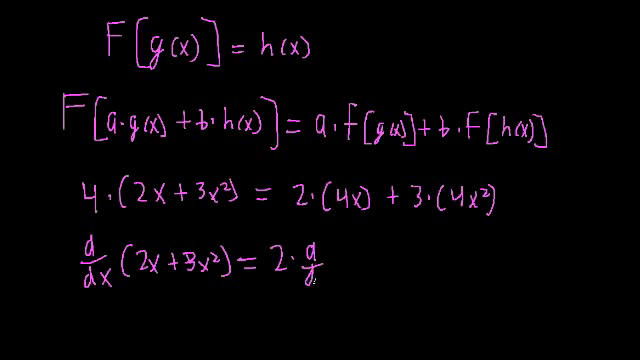 F[g(x)] = h(x)
F[a·g(x) + b·h(x)] = a·F[g(x)] + b·F[h(x)]
4·(2x + 3x²) = 2·(4x) + 3·(4x²)
d/dx (2x + 3x²) = 2· d/